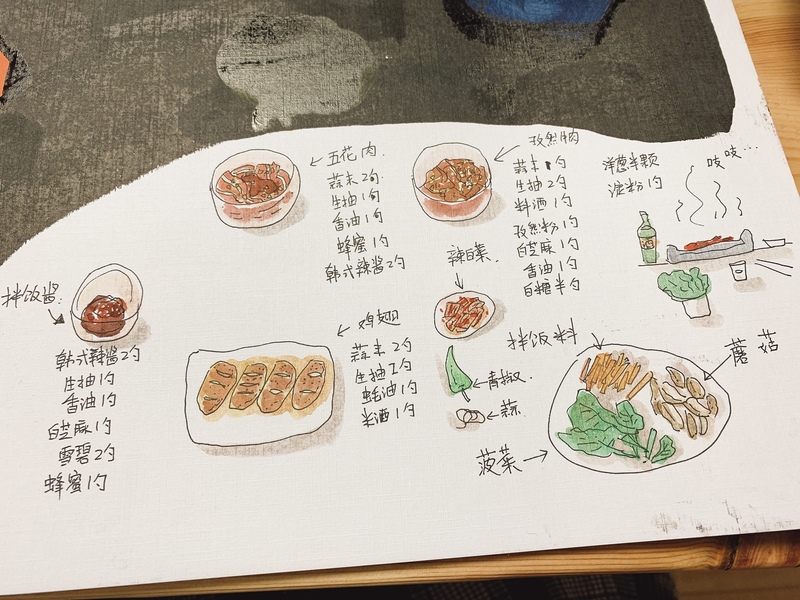 五花肉
蒜末2勺
生抽1勺
香油1勺
蜂蜜1勺
韩式辣酱2勺
孜然牛肉
蒜末1勺
生抽2勺
料酒1勺
孜然粉1勺
白芝麻1勺
香油1勺
白糖半勺
洋葱半颗
淀粉1勺
吱吱...
拌饭酱
韩式辣酱2勺
生抽1勺
香油1勺
白芝麻1勺
雪碧2勺
蜂蜜1勺
鸡翅
蒜末2勺
生抽2勺
蚝油1勺
米酒1勺
辣白菜
青椒
蒜
拌饭料
蘑菇
菠菜